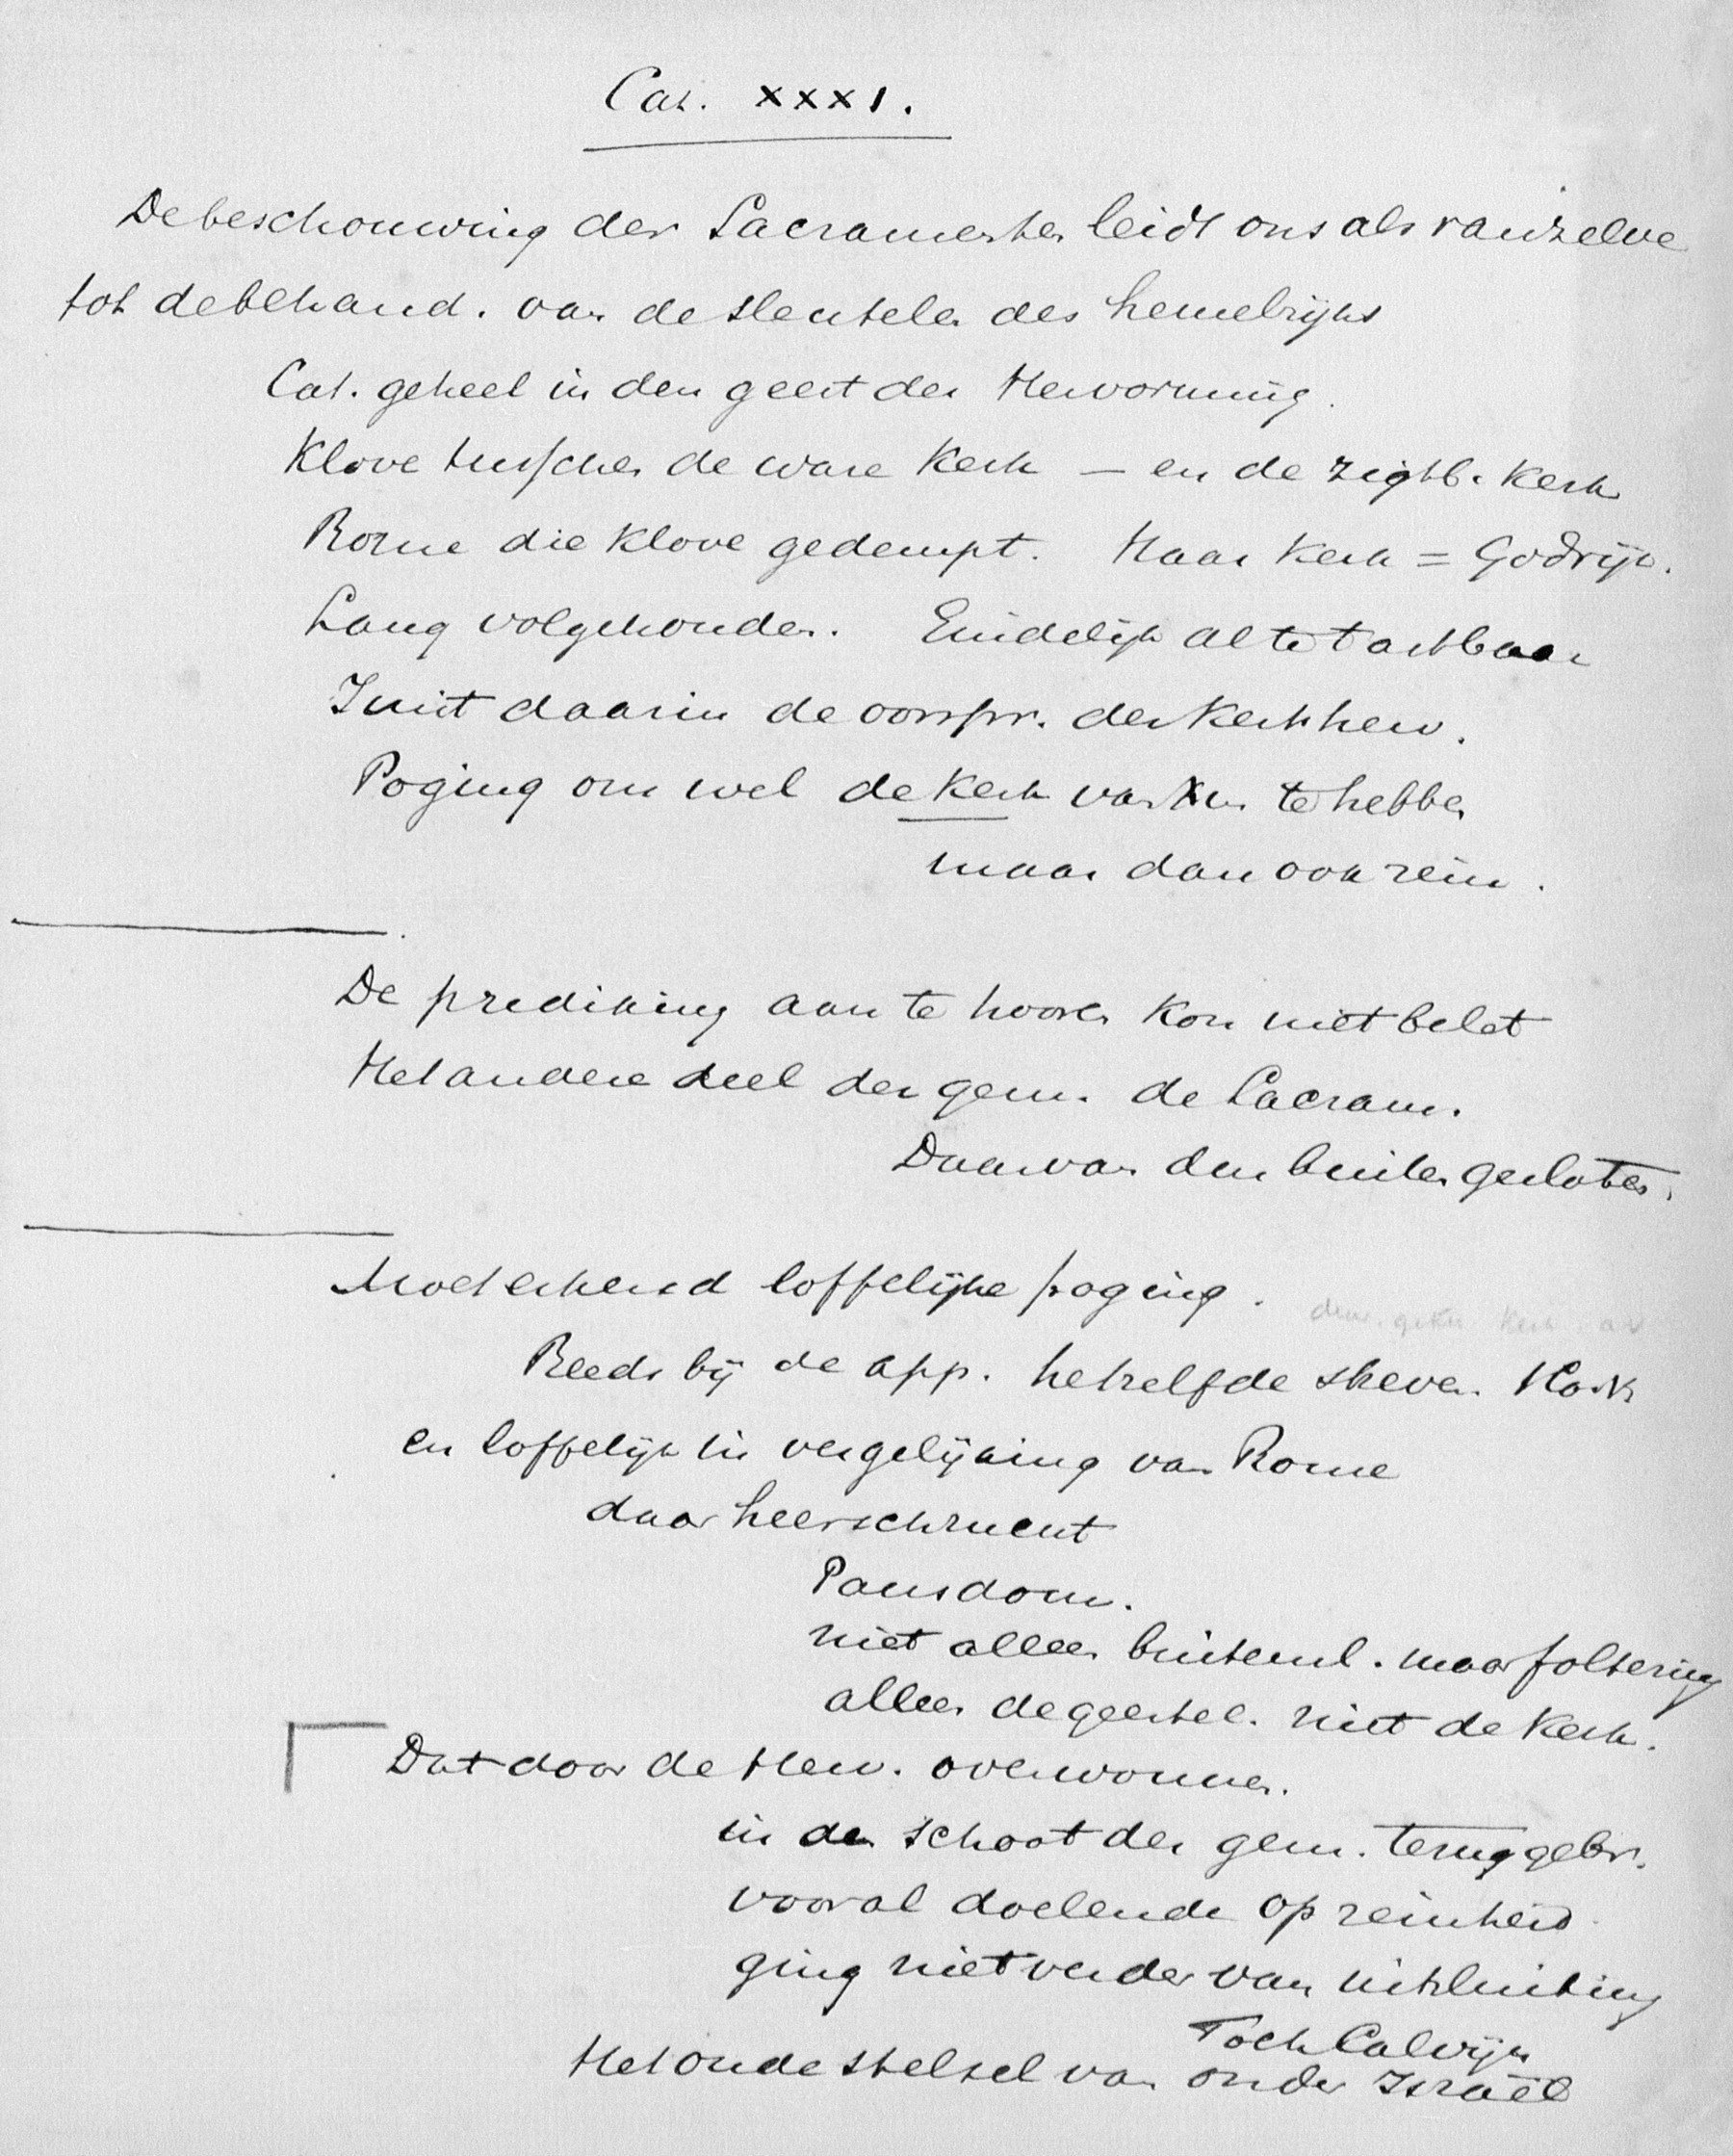 Cat. XXXI.
De beschouwing der Sacramenten leidt ons als vanzelve
tot de behand. van de sleutelen des hemelrijks
Cat. geheel in den geest der Hervorming.
Klove tusschen de ware Kerk — en de zigtb. Kerk
Rome die Klove gedempt. Haar Kerk = Godsrijk.
Lang volgehouden. Eindelijk al te tastbaar
Juist daarin de oorspr. der Kerkherv.
Poging om wel de Kerk van Xus te hebben
maar dan ook rein.
De prediking aan te hooren Kon niet belet
Het andere deel der gem. de Sacram.
Daarvan dan buiten gesloten.
Moet erkend loffelijke poging.
Reeds bij de app. hetzelfde streven.
en loffelijk in vergelijking van Rome
daar heerschzucht
Pausdom.
niet alleen buitensl. maar foltering
alleen de geestel. niet de Kerk.
Dat door de Herv. overwonnen.
in den schoot der gem. teruggebr.
vooral doelende op reinheid
ging niet verder van uitsluiting
Toch Calvijn
Het oude stelsel van onder Israël